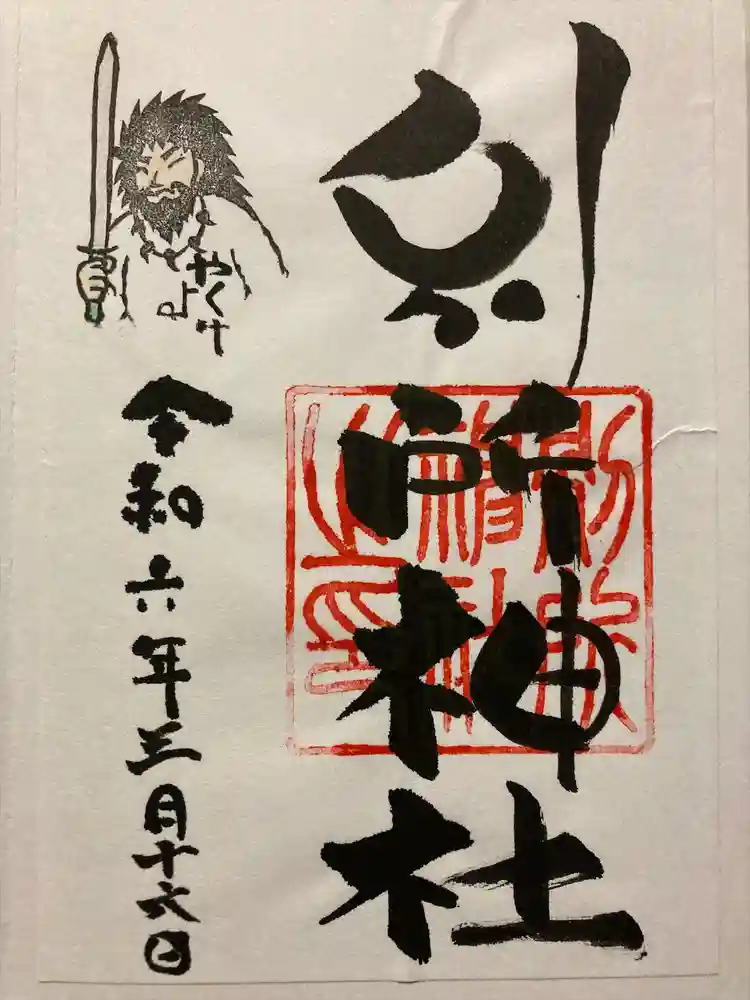 別所神社
やくよけ
令和六年三月十六日